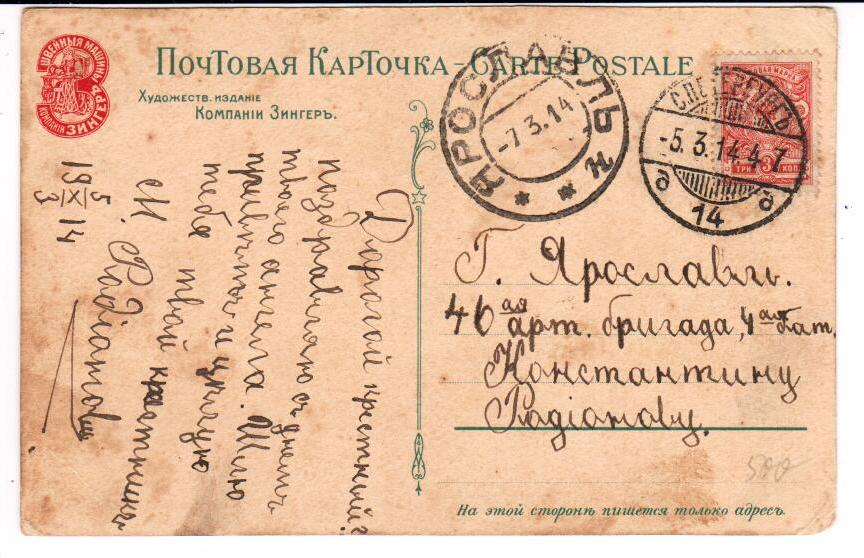 ПОЧТОВАЯ КАРТОЧКА – CARTE POSTALE
ШВЕЙНЫЯ МАШИНЫ
КОМПАНІИ ЗИНГЕРЪ
ХУДОЖЕСТВ. ИЗДАНІЕ
КОМПАНІИ ЗИНГЕРЪ.
ЯРОСЛАВЛЬ
-7.3.14
-5.3.14.4-7
14
ТРИ 3 КОП
Дарагой крестный!
поздравляю съ днемъ
твоего ангела. Шлю
привѣтъ и цѣлую
тебя твой крестникъ
М. Радіоновъ
5
19 14
3
Г. Ярославль.
46 ая арт. бригада, 4 ая бат.
Константину
Радіонову.
500
На этой сторонѣ пишется только адресъ.